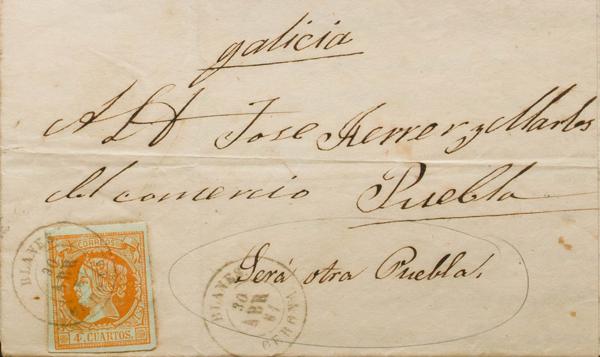 galicia
A D.n Jose Ferrer y Martos
del comercio Puebla
Será otra Puebla.
BLANES
30
ABR
CORREOS
4 CUARTOS.
BLANES
30
ABR
61
GERONA